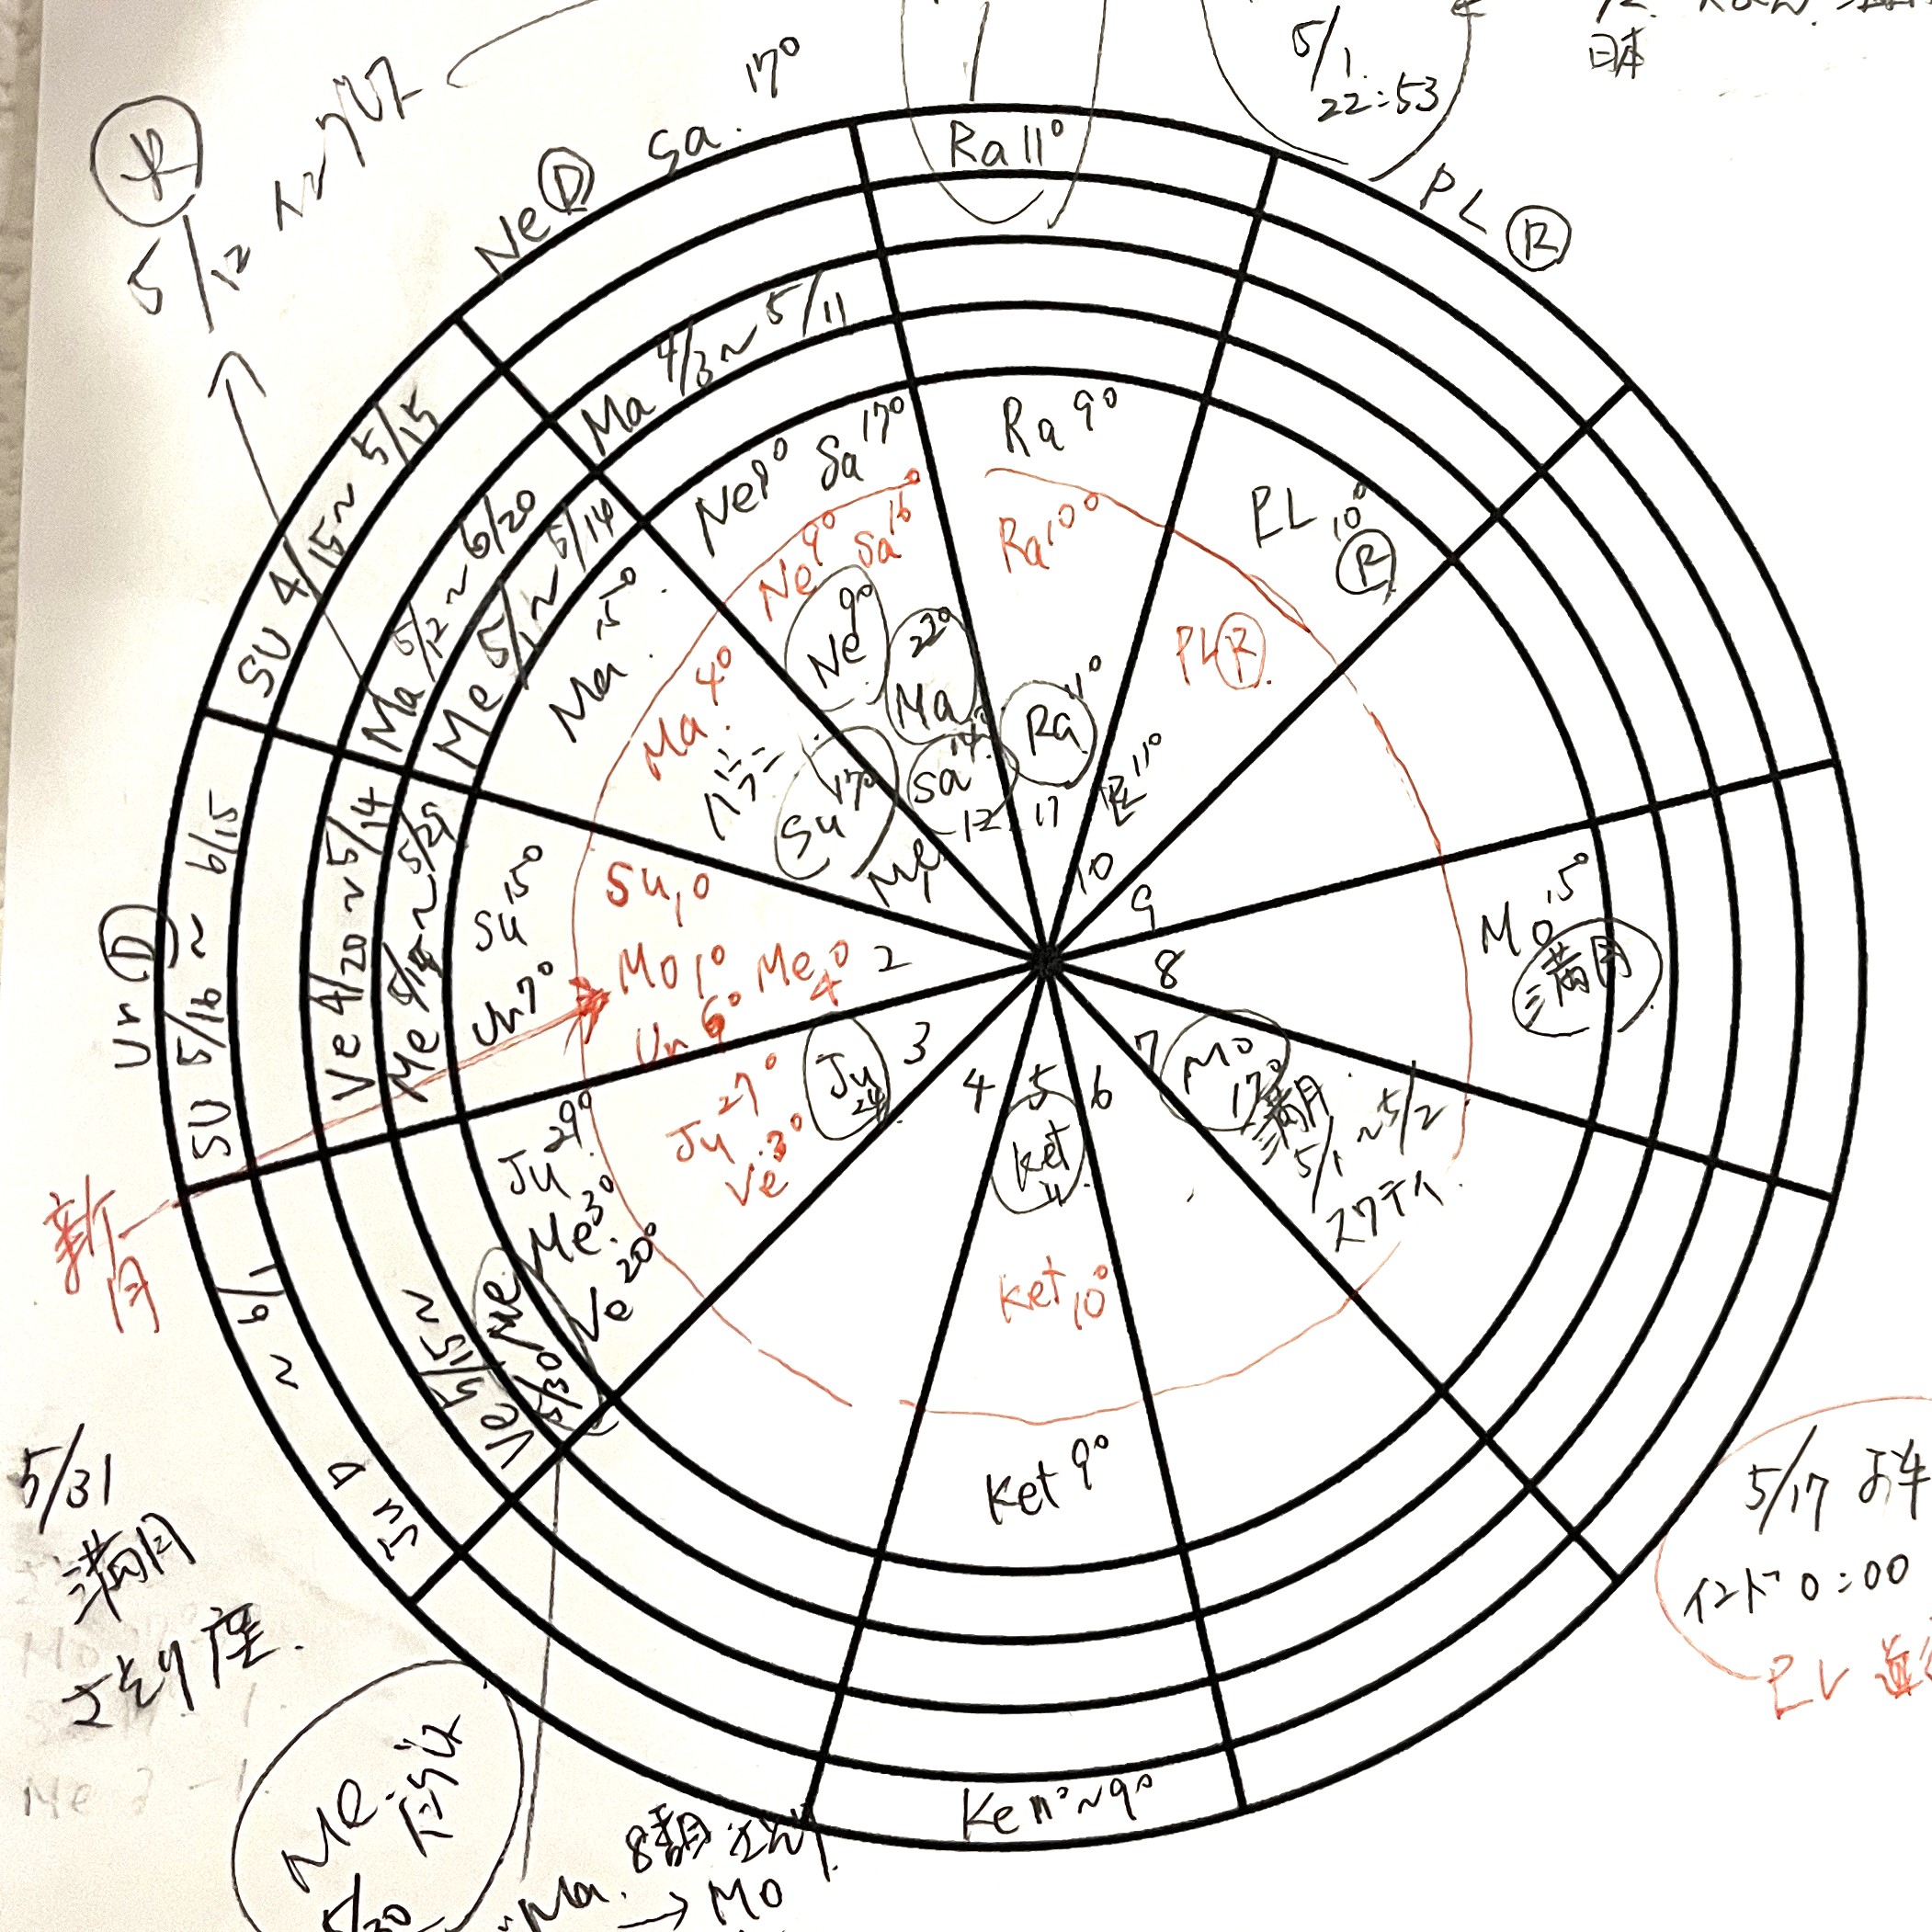 5/1
22:53
日本
17°
Ne Ⓓ Sa.
Ra 11°
PL Ⓡ
5/12
Ma 4/3~5/11
SU 4/15~5/15
Ma 5/12~6/20
Me 5/1~5/14
Ma 15°
Ne 9° Sa 17°
Ra 9°
PL 10° Ⓡ
Ne 9° Sa 16°
Ra 10°
PL Ⓡ
Ma 4°
Ne 9°
Ma 22°
Sa 14°
12
Ra 11°
11
PL 11°
10
Su 17°
Me
1
9
8
Mo 15°
満月
Ur Ⓓ
SU 5/16~6/15
Ve 4/20~5/14
Su 15°
Ur 7°
Su 1°
Mo 1° Me 4°
Ur 6°
2
新月
Ju 29°
Me 3°
Ve 20°
Ju 27°
Ve 3°
Ju 24
3
4
5
6
7
Ket 11
Mo 17°
満月
5/1~5/2
Ket 10°
Ket 9°
Ke 11°~9°
Ve 5/15~
Me 5/30
~6/1
5/31
満月
さそり座.
5/17
インド 0:00
Me
5/30
Ma.
→ Mo